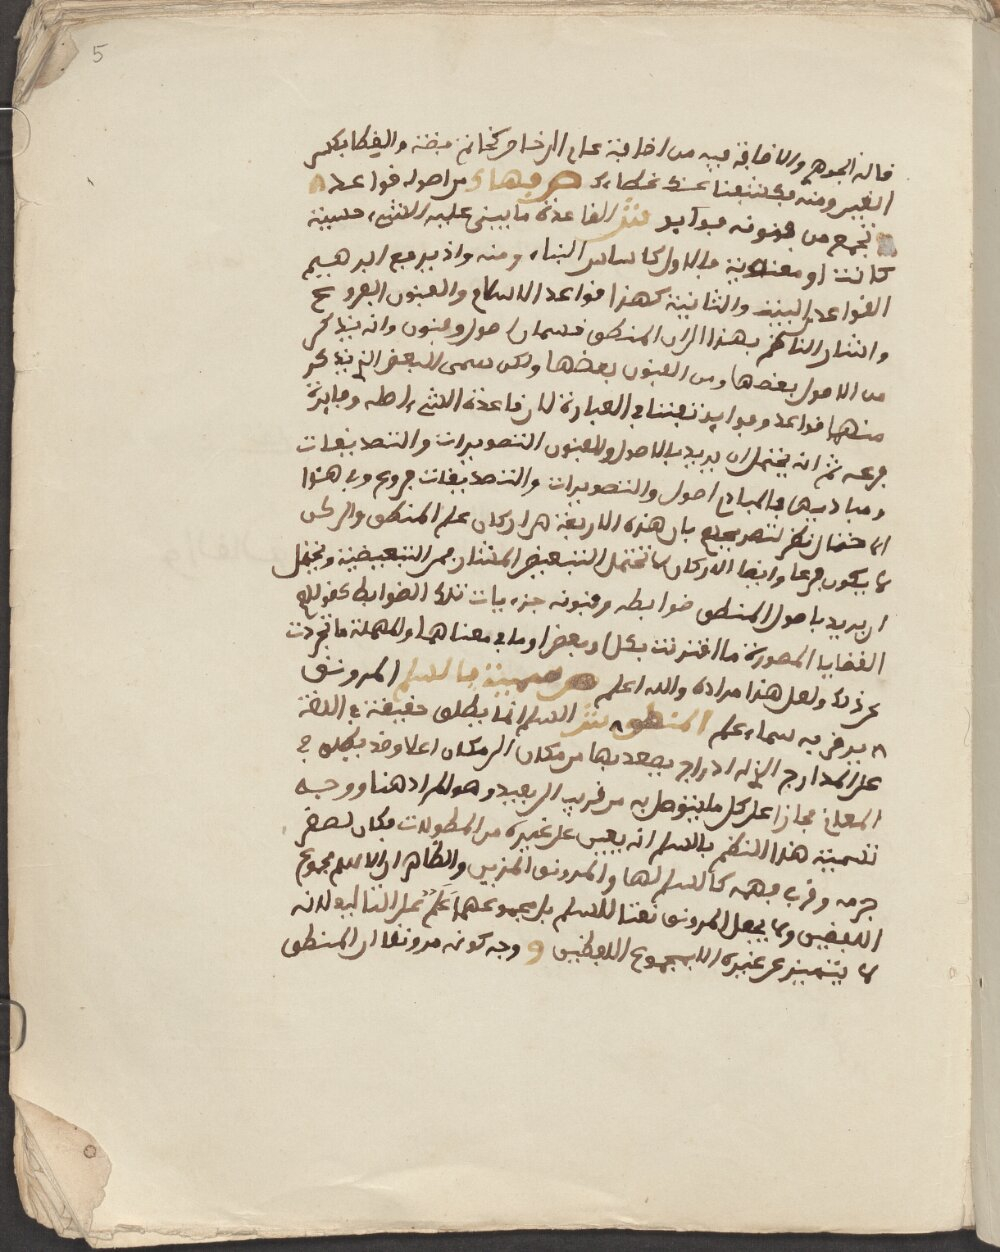 5
قاله الجوهري والاضافة فيه من اضافة عام الى خاص كخاتم فضة والغطا بكسر
الغين ومنه فكشفنا عنك غطاءك ص فهاك من اصوله قواعدا
تجمع من فنونه فوايد ش القاعدة ما يبنى عليه الشيء حسية
كانت او معنوية فالاول كاساس البناء ومنه واذ يرفع ابرهيم
القواعد من البيت والثانية كهذا قواعد الاسلام والفنون الفروع
واشار الناظم بهذا الى ان المنطق قسمان اصول وفنون وانه يذكر
من الاصول بعضها ومن الفنون بعضها ولكن سمى البعض الذي يذكر
منها قواعد وفوايد تفننا في العبارة لان قاعدة الشيء اصله وفايدة
فرعه ثم انه يحتمل ان يريد بالاصول والفنون التصورات والتصديقات
ومباديها فالمبادي اصول والتصورات والتصديقات فروع وفي هذا
الاحتمال نظر لتصريحهم بان هذه الاربعة هي اركان علم المنطق والركن
لا يكون فرعا وايضا الاركان لا تحتمل التبعيض المشار من التبعيضية ويحتمل
ان يريد باصول المنطق ضوابطه وفنونه جزءيات تلك الضوابط كقولهم
القضايا المصورة ما اقترنت بكل او بعض او ما في معناهما والمهملة ما تجردت
عن ذلك ولعل هذا مراده والله اعلم ص سميته بالسلم المرونق
يرقى به سماء علم المنطق ش السلم انما يطلق حقيقة في اللغة
على المدارج الذي له ادراج يصعد بها من مكان الى مكان اعلا وقد يطلق في
المعاني مجازا على كل ما يتوصل به من قريب الى بعيد وهو المراد هنا ووجه
تسمية هذا النظم بالسلم انه يعين على غيره من المطولات فكان لصغر
جرمه وقرب فهمه كالسلم لها والمرونق المزين والظاهر ان الاسم مجموع
اللفظين ولا يجعل المرونق نعتا للسلم بل مجموعهما علم على التاليف لانه
لا يتميز عن غيره الا بمجموع اللفظين و وجه كونه مرونقا ان المنطق